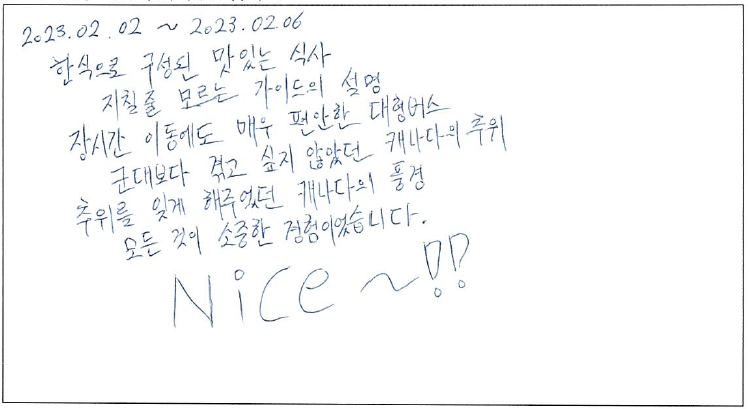 2023.02.02 ~ 2023.02.06
한식으로 구성된 맛있는 식사
지칠줄 모르는 가이드의 설명
장시간 이동에도 매우 편안한 대형버스
군대보다 겪고 싶지 않았던 캐나다의 추위
추위를 잊게 해주었던 캐나다의 풍경
모든 것이 소중한 경험이었습니다.
Nice~!!